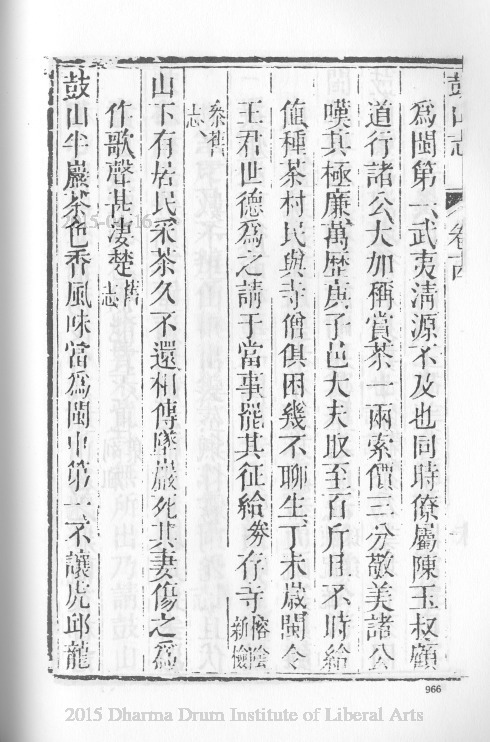 鼓山志 卷十四
爲閩第一武夷淸源不及也同時僚屬陳玉叔顧
道行諸公大加稱賞茶一兩索價三分敬美諸公
嘆其極廉萬歴庚子邑大夫取至百斤且不時給
値種茶村民與寺僧俱困幾不聊生丁未歳閩令
王君世德爲之請于當事罷其征給劵存寺榕陰新檢
叅舊志
山下有居民采茶久不還相傳墜巖死其妻傷之爲
作歌聲甚淒楚舊志
鼓山半巖茶色香風味當爲閩中第一不讓虎邱龍
966
2015 Dharma Drum Institute of Liberal Arts